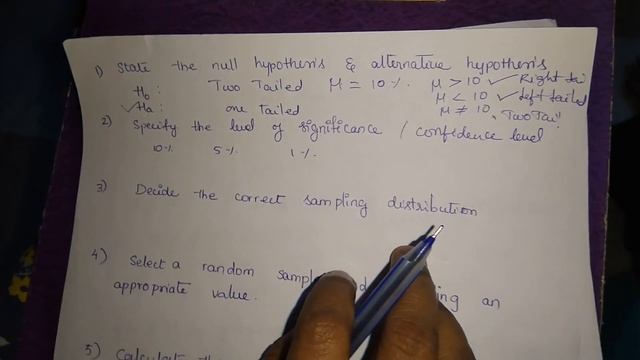 1) State the null hypothesis & alternative hypothesis
H₀ : Two Tailed μ = 10 %. μ > 10 ✓ Right tai
✓ Ha : one Tailed μ < 10 ✓ left tailed
μ ≠ 10 Two Tai
2) Specify the level of significance / confidence level
10 % 5 % 1 %.
3) Decide the correct sampling distribution
4) Select a random sampl ing an
appropriate value.
5)